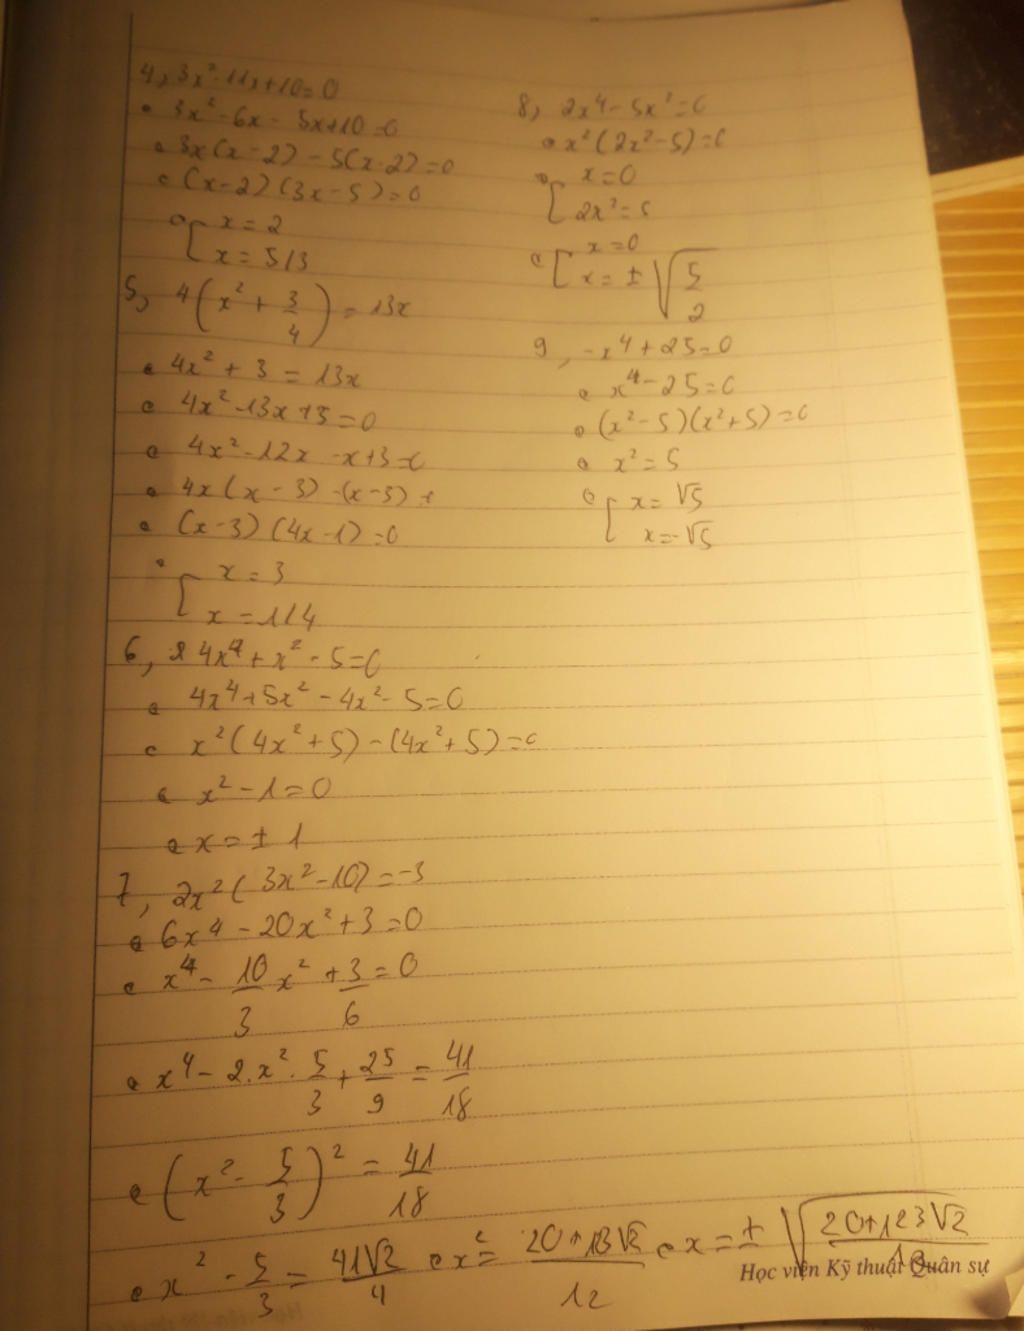 4, 3x² - 11x + 10 = 0
• 3x² - 6x - 5x + 10 = 0
• 3x(x - 2) - 5(x - 2) = 0
• (x - 2)(3x - 5) = 0
• [ x = 2
x = 5/3
5, 4(x² + 3/4) = 13x
• 4x² + 3 = 13x
• 4x² - 13x + 3 = 0
• 4x² - 12x - x + 3 = 0
• 4x(x - 3) - (x - 3) =
• (x - 3)(4x - 1) = 0
• [ x = 3
x = 1/4
6, 4x⁴ + x² - 5 = 0
• 4x⁴ + 5x² - 4x² - 5 = 0
• x²(4x² + 5) - (4x² + 5) = 0
• x² - 1 = 0
• x = ± 1
7, 2x²(3x² - 10) = -3
• 6x⁴ - 20x² + 3 = 0
• x⁴ - 10/3 x² + 3/6 = 0
• x⁴ - 2.x².5/3 + 25/9 = 41/18
• (x² - 5/3)² = 41/18
• x² - 5/3 = 41√2/4 • x² = 20+ √2/12 • x = ± √(20+123√2/12)
8, 2x⁴ - 5x² = 0
• x²(2x² - 5) = 0
• [ x = 0
2x² = 5
• [ x = 0
x = ± √(5/2)
9, -x⁴ + 25 = 0
• x⁴ - 25 = 0
• (x² - 5)(x² + 5) = 0
• x² = 5
• [ x = √5
x = -√5
Học viện Kỹ thuật Quân sự